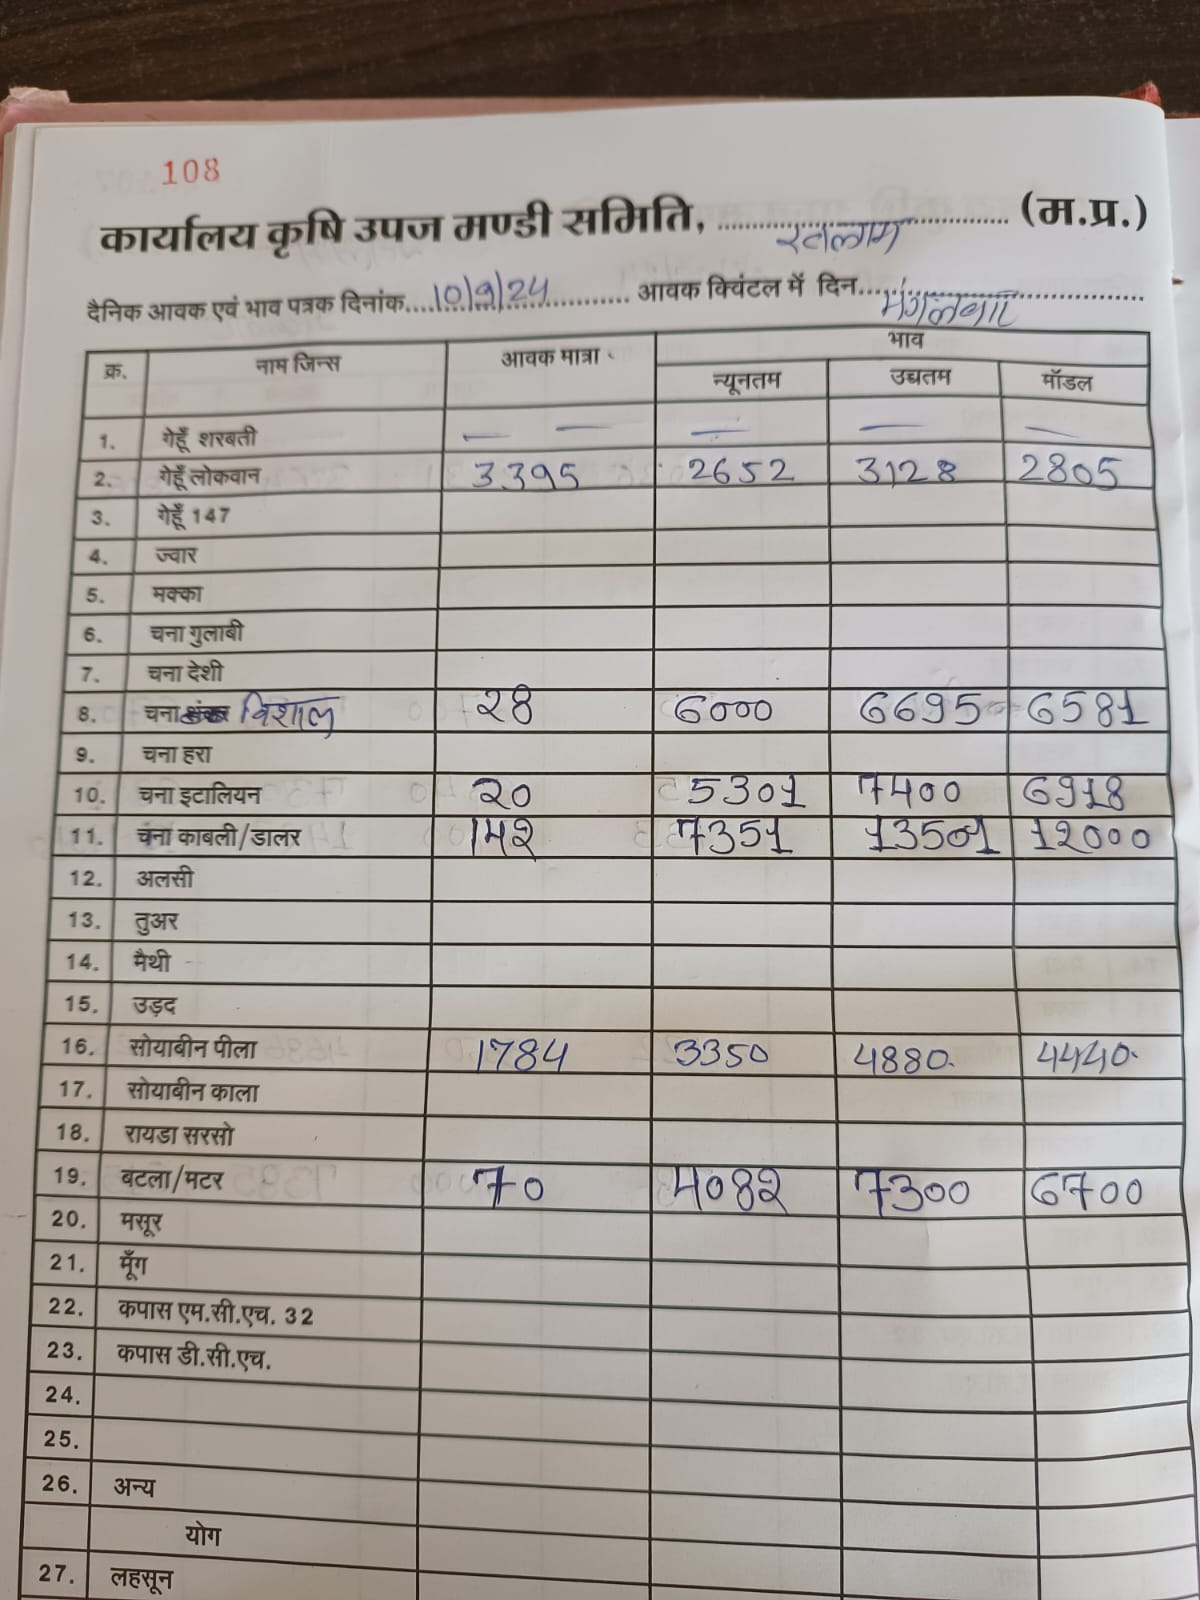 108
कार्यालय कृषि उपज मण्डी समिति, रतलाम (म.प्र.)
दैनिक आवक एवं भाव पत्रक दिनांक 10/9/24 आवक क्विंटल में दिन मंगलवार
क्र. नाम जिन्स आवक मात्रा भाव
न्यूनतम उच्चतम मॉडल
1. गेहूँ शरबती — — — — —
2. गेहूँ लोकवान 3395 2652 3128 2805
3. गेहूँ 147
4. ज्वार
5. मक्का
6. चना गुलाबी
7. चना देशी
8. चना विशाल २8 6000 6695 6581
9. चना हरा
10. चना इटालियन २0 5301 7400 6918
11. चना काबली/डालर 14२ 7351 13501 1२000
12. अलसी
13. तुअर
14. मैथी
15. उड़द
16. सोयाबीन पीला 1784 3350 4880. 4440.
17. सोयाबीन काला
18. रायडा सरसो
19. बटला/मटर 70 408२ 7300 6700
20. मसूर
21. मूँग
22. कपास एम.सी.एच. 32
23. कपास डी.सी.एच.
24.
25.
26. अन्य
योग
27. लहसून